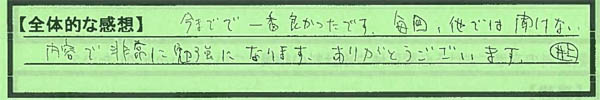 【全体的な感想】 今までで一番良かったです。毎回、他では聞けない
内容で非常に勉強になります。ありがとうございます。 井上